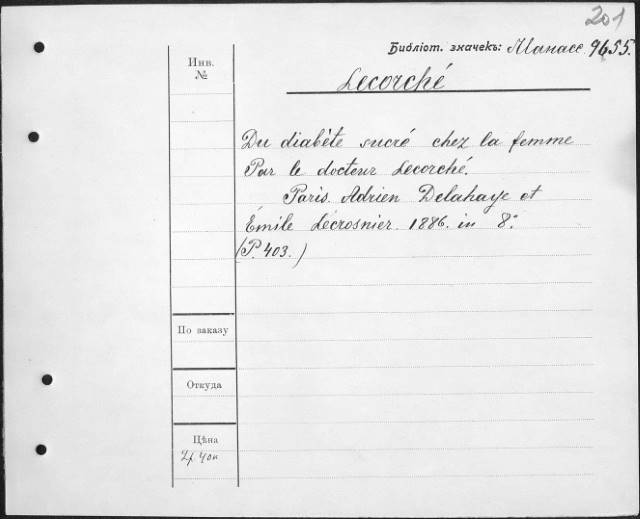 201
Библіот. значекъ: Манасс. 9655.
Lecorché
Инв.
№
Du diabète sucré chez la femme
Par le docteur Lecorché.
Paris. Adrien Delahaye et
Émile Lécrosnier. 1886. in 8º
(P. 403.)
По заказу
Откуда
Цѣна
2р 40к